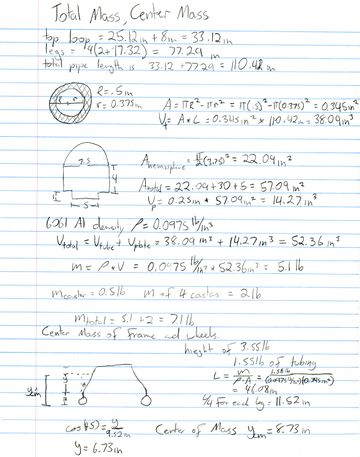 Total Mass, Center Mass
top loop = 25.12in + 8in = 33.12in
legs = 4(2+17.32) = 77.29 in
total pipe length is 33.12+77.29 = 110.42 in
R=.5in
r=0.375in
A = πR² - πr² = π(.5)² - π(0.375)² = 0.345in²
V = A*L = 0.345in² * 110.42in = 38.09in³
7.5
4
1
5
A hemisphere = π/2 (3.75)² = 22.09in²
Atotal = 22.09+30+5 = 57.09in²
Vp = 0.25in * 57.09in² = 14.27in³
6061 Al density ρ = 0.0975 lb/in³
Vtotal = Vtube + Vplate = 38.09in³ + 14.27in³ = 52.36in³
m = ρ*V = 0.0975 lb/in³ * 52.36in³ = 5.1lb
mcaster = 0.5lb m of 4 casters = 2lb
mtotal = 5.1+2 = 7.1lb
Center Mass of Frame and wheels.
hieght of 3.55lb
1.55lb of tubing
L = m/ρ·A = 1.55lb/(0.0975 lb/in³)(0.345in²)
= 46.08in
L/4 for each leg = 11.52in
ycm
y
cos(45) = y/9.52in
y = 6.73in
Center of Mass ycm = 8.73in